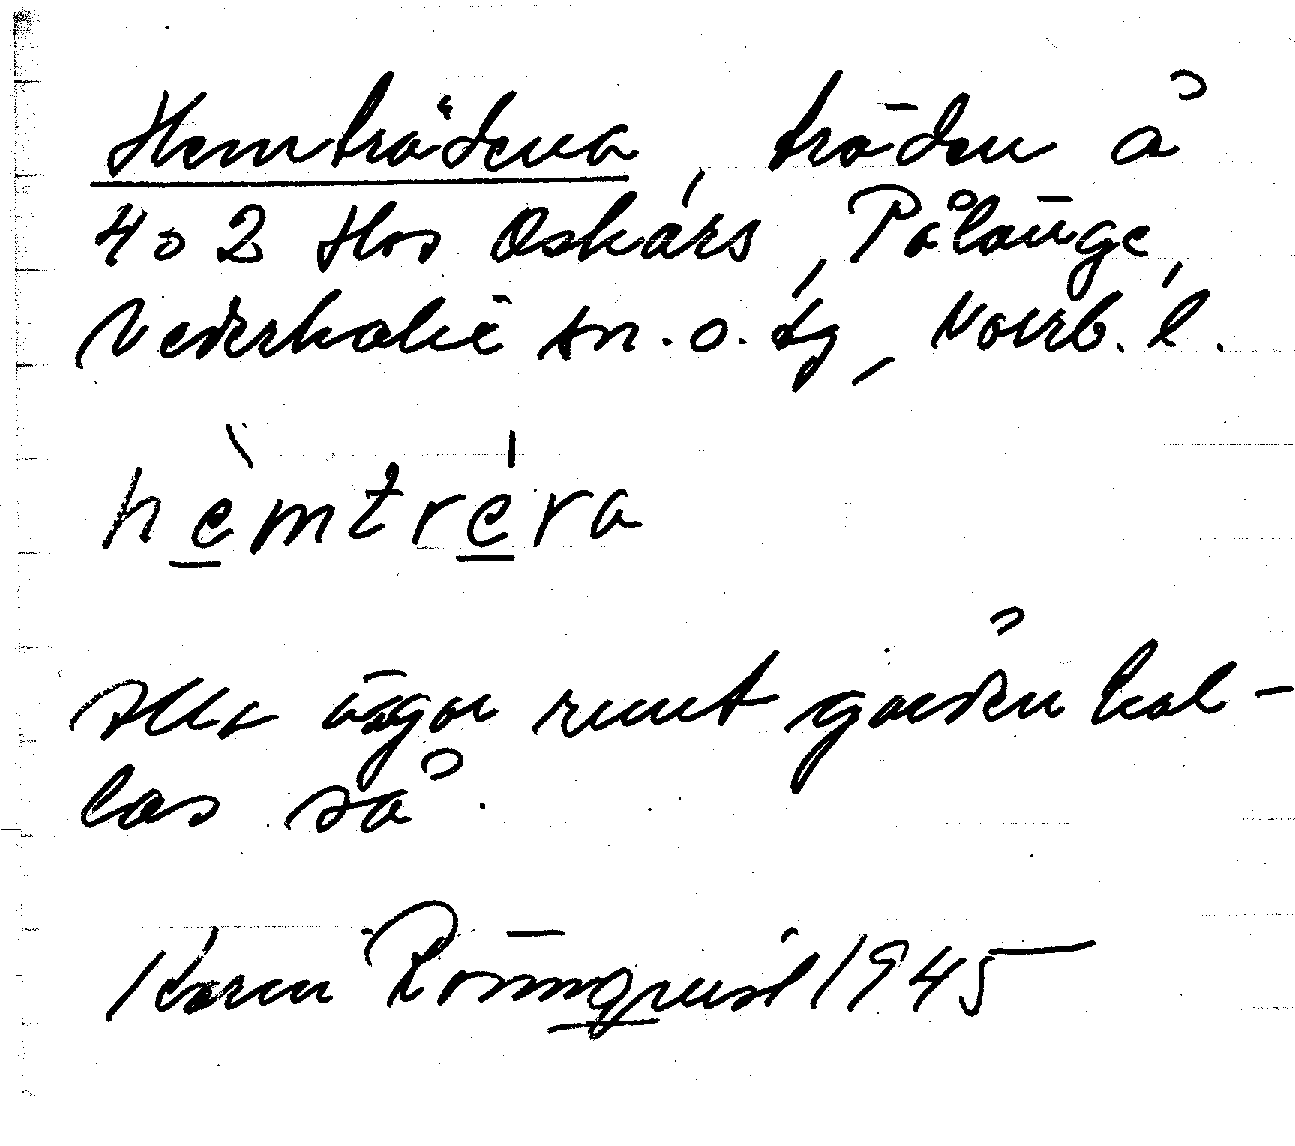 Hemträdena, träden å
4 o 2 Hos Oskars, Pålänge,
Nederkalix sn. o. tg, Norrb. l.
hèmtréra
Alla vägar runt gården kal-
las så.
Karin Rönnquist 1945